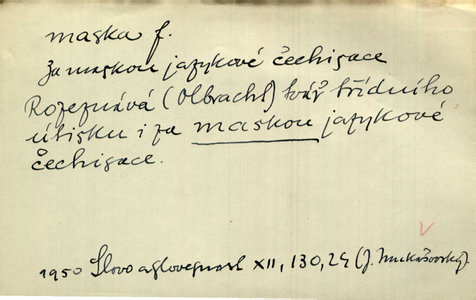 maska f.
Za maskou jazykové čechisace
Rozeznává (Olbracht) tvář třídního
útisku i za maskou jazykové
čechisace.
1950 Slovo a slovesnost XII, 130, 24 (J. Mukařovský).